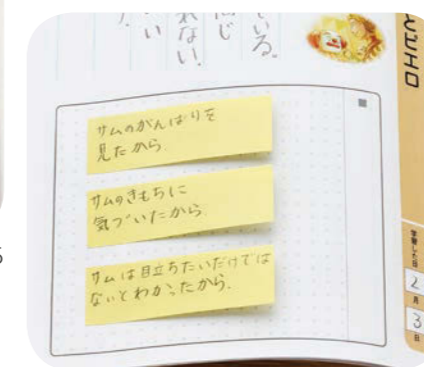 いる。
同じ
れない。
い
とピエロ
サムのがんばりを
見たから.
サムのきもちに
気づいたから.
サムは目立ちたいだけでは
ないとわかったから.
学習した日
2
月
3
日